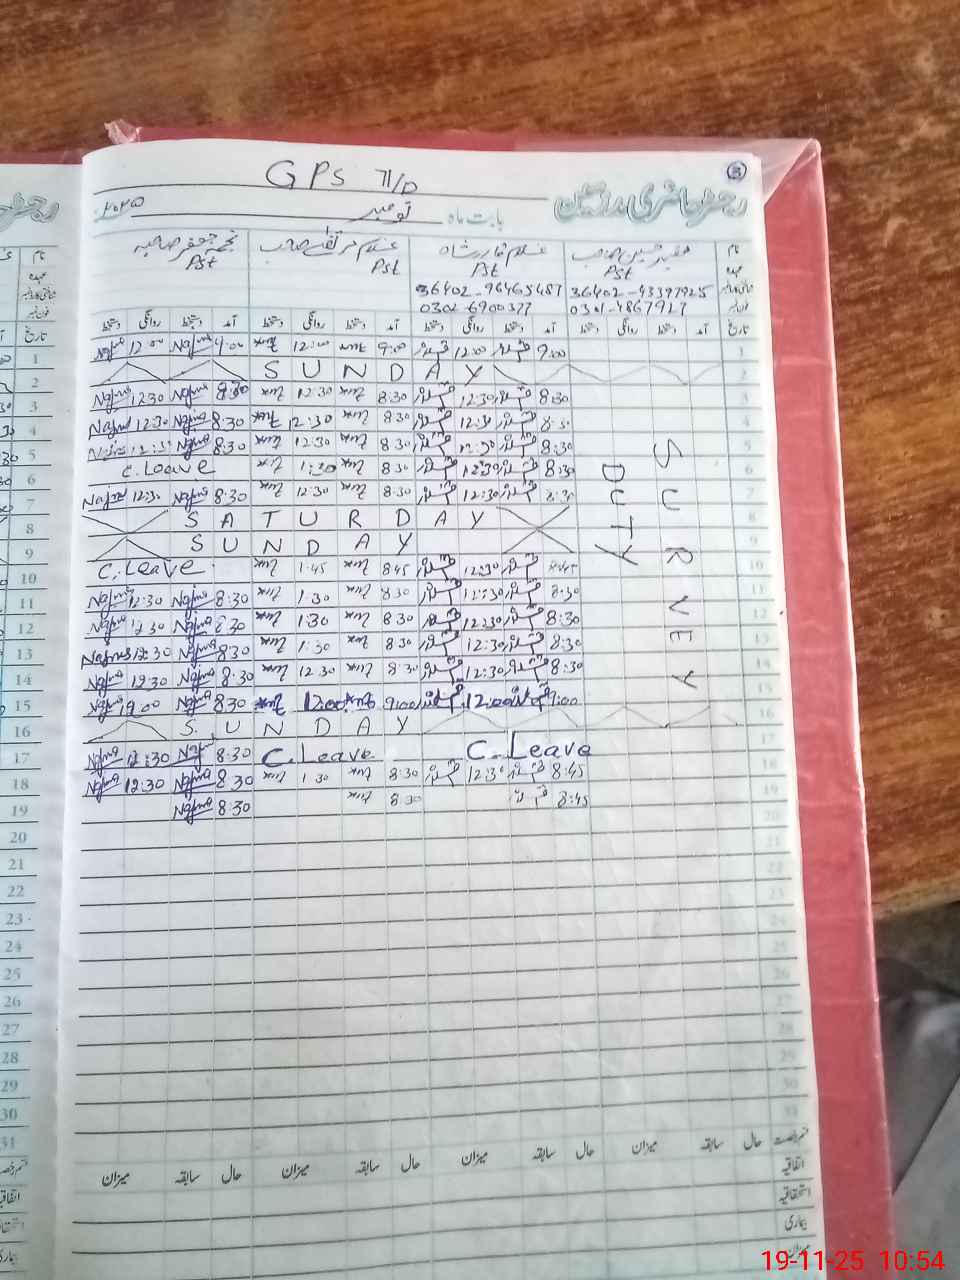 GPS 71/D
③
رجسٹر حاضری مدرسین
بابت ماہ نومبر ۲۰۲۵
نام
عہدہ
صفدر حسین صاحب PST
غلام قادر شاہ PST
غلام مرتضیٰ صاحب PST
نجمہ جعفر صاحبہ PST
36402-43397925 36402-96465487
0301-4867927 0302-6900377
تاریخ آمد دستخط روانگی دستخط آمد دستخط روانگی دستخط آمد دستخط روانگی دستخط آمد دستخط روانگی دستخط
1 9:00 12:00 9:00 12:00 9:00 12:00
2 SUNDAY
3 8:30 12:30 8:30 12:30 8:30 Najma 12:30 Najma
4 8:30 12:30 8:30 12:30 8:30 Najma 12:30 Najma
5 8:30 12:30 8:30 12:30 8:30 Najma 12:30 Najma
6 8:30 12:30 8:30 1:30 C.Leave
7 8:30 12:30 8:30 12:30 8:30 Najma 12:30 Najma
8 SATURDAY
9 SUNDAY
10 8:45 12:30 8:45 1:45 C.Leave
11 8:30 12:30 8:30 1:30 8:30 Najma 12:30 Najma
12 8:30 12:30 8:30 1:30 8:30 Najma 12:30 Najma
13 8:30 12:30 8:30 1:30 8:30 Najma 12:30 Najma
14 8:30 12:30 8:30 12:30 8:30 Najma 12:30 Najma
15 9:00 12:00 9:00 12:00 8:30 Najma Najma
16 SUNDAY
17 C.Leave C.Leave 8:30 Najma 12:30 Najma
18 8:45 12:30 8:30 1:30 8:30 Najma 12:30 Najma
19 8:45 8:30 8:30 Najma
SURVEY
DUTY
20
21
22
23
24
25
26
27
28
29
30
31
حال سابقہ میزان حال سابقہ میزان حال سابقہ میزان حال سابقہ میزان
اتفاقیہ
استحقاقیہ
بیماری
میزان
19-11-25 10:54